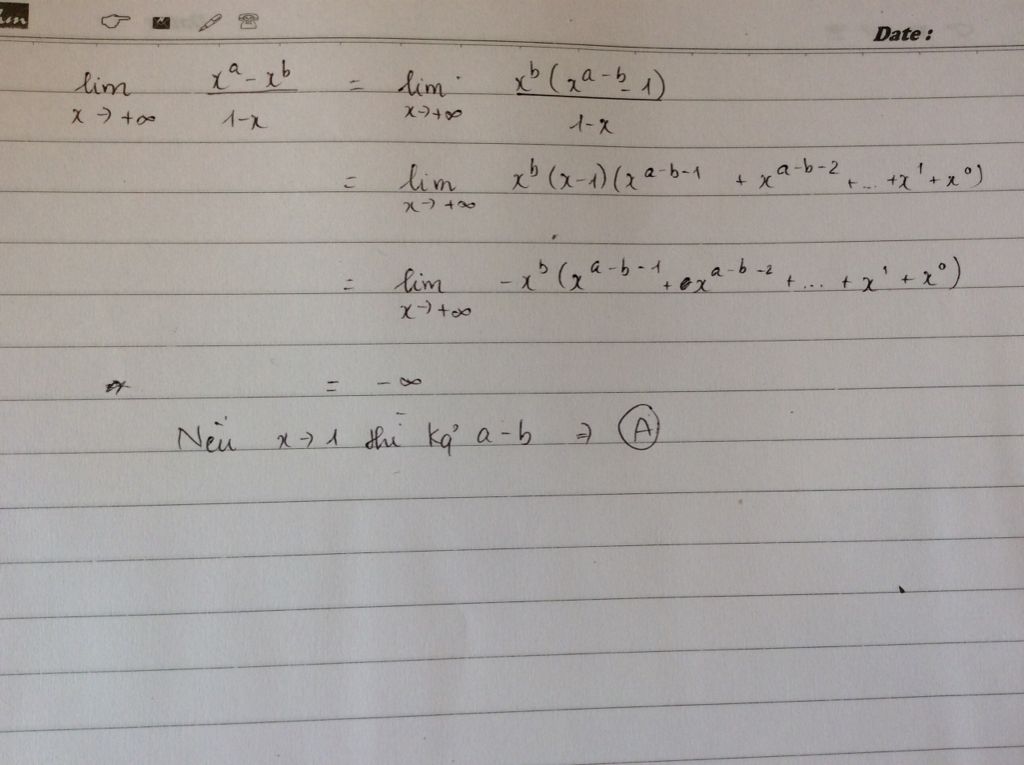 Date :
lim x→+∞ (x^a - x^b)/(1-x) = lim x→+∞ x^b(x^(a-b) - 1)/(1-x)
= lim x→+∞ x^b(x-1)(x^(a-b-1) + x^(a-b-2) + ... + x^1 + x^0)
= lim x→+∞ -x^b(x^(a-b-1) + x^(a-b-2) + ... + x^1 + x^0)
= -∞
Nếu x→1 thì Kq' a-b ⇒ A